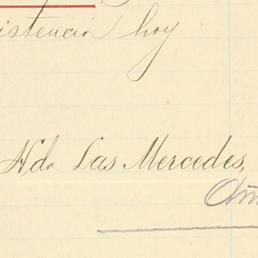 istencia hoy
Hda Las Mercedes,